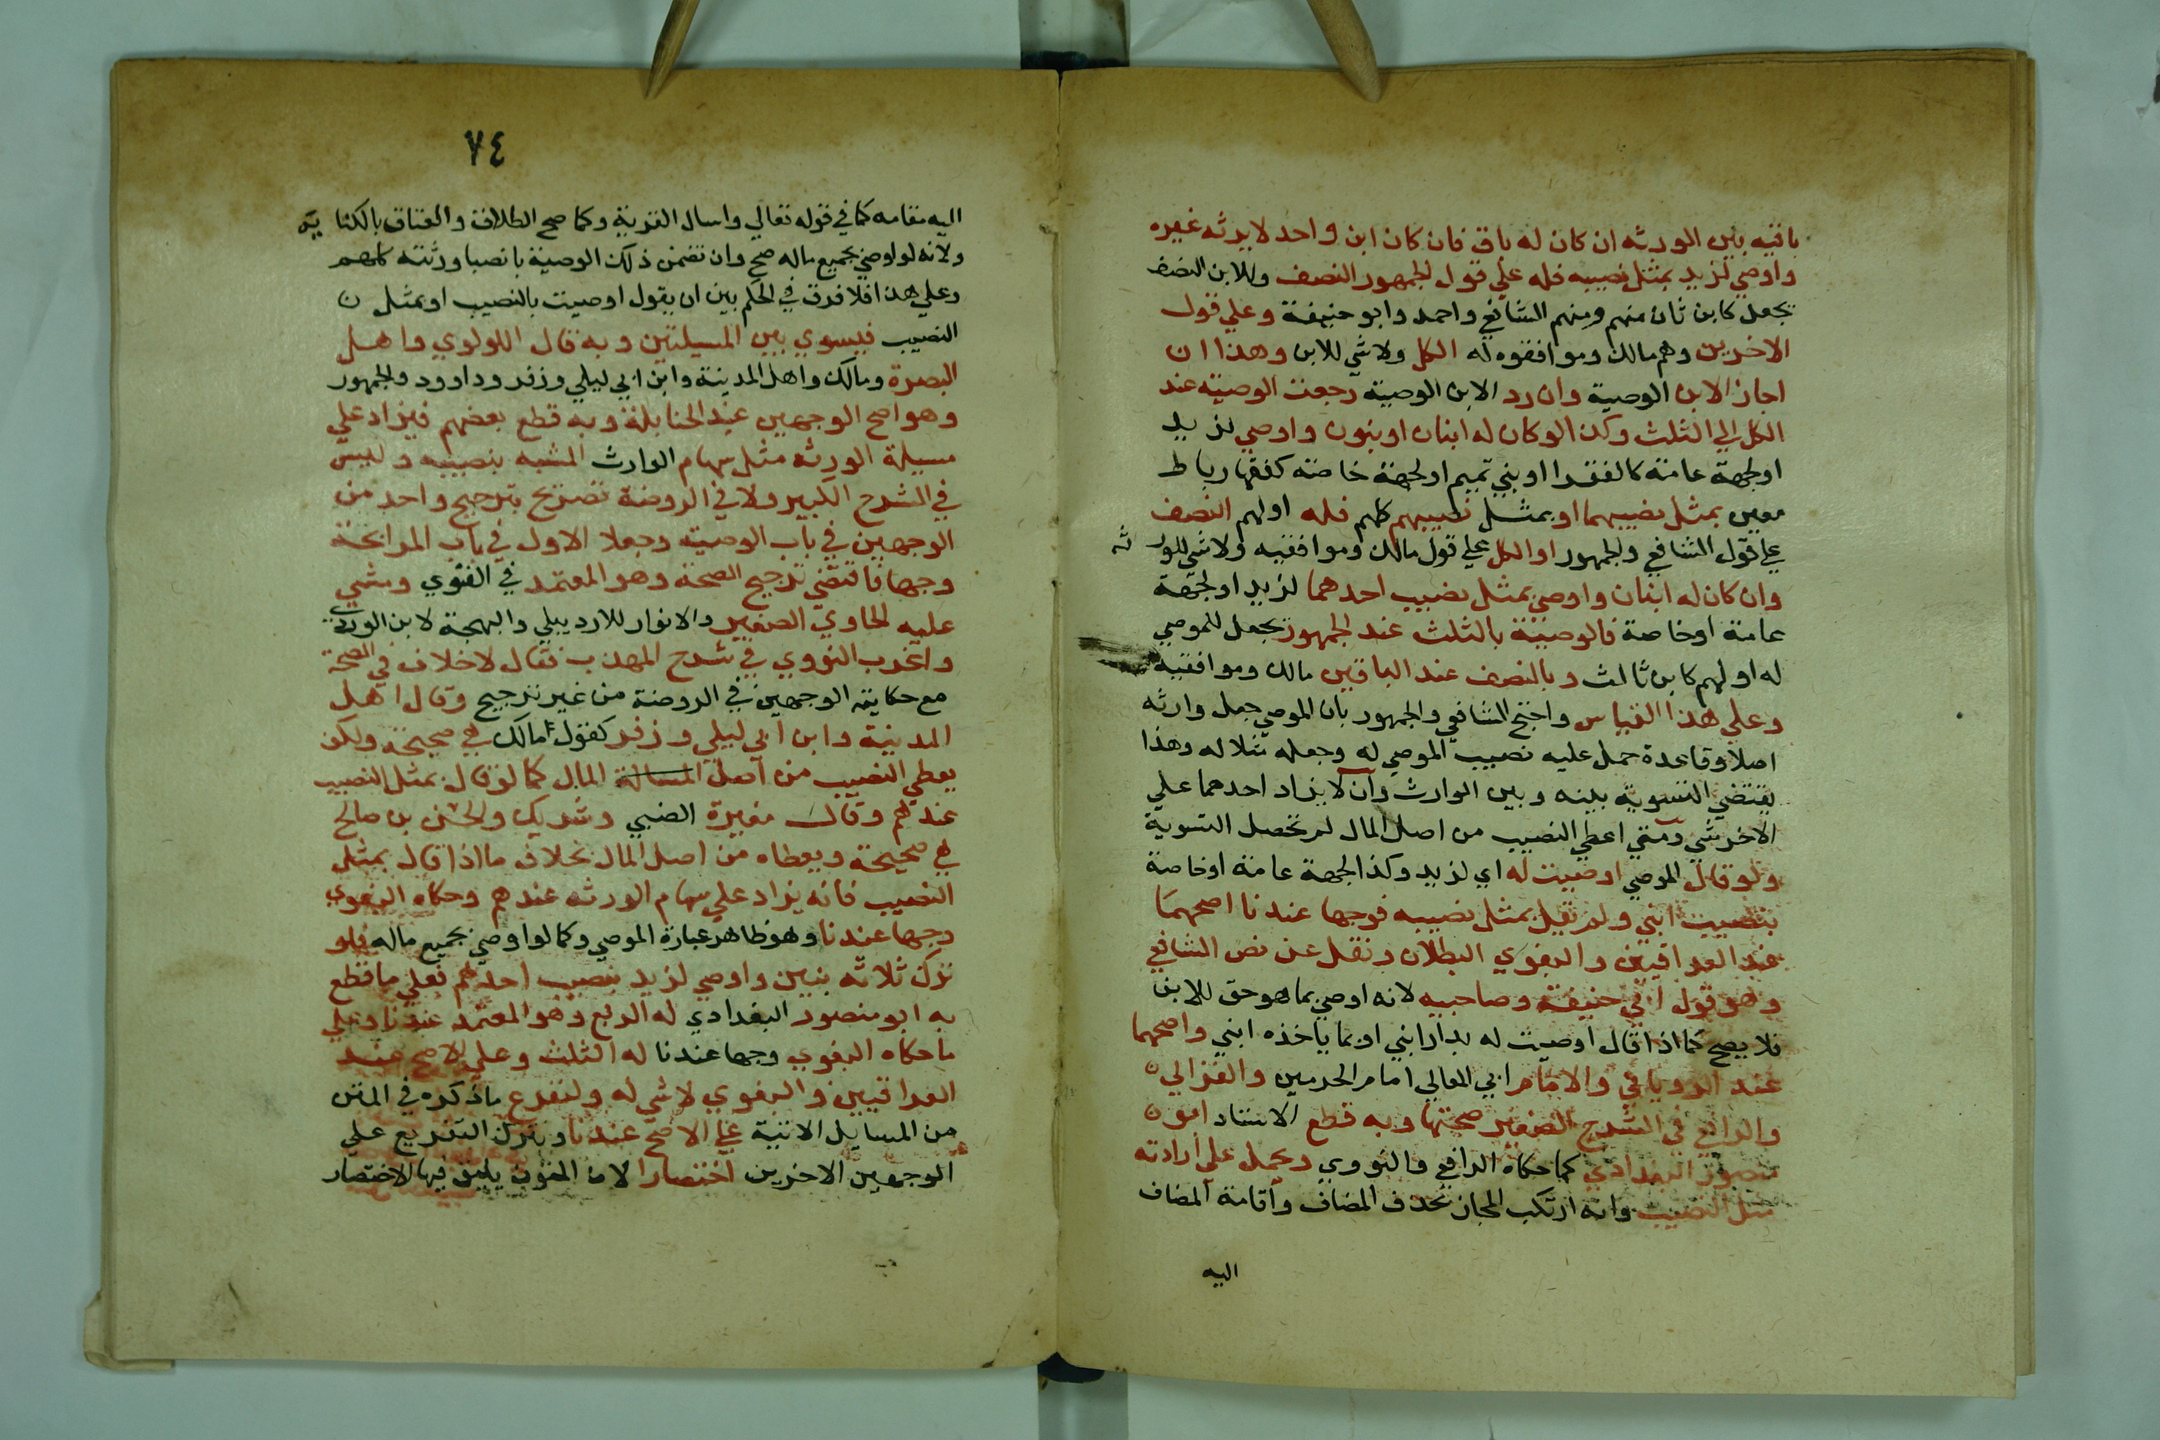 باقيه بين الورثه ان كان له باق فان كان ابن واحد لا يرثه غيره
واوصي لزيد بمثل نصيبه فله علي قول الجمهور النصف وللابن النصف
يجعل كابن ثان منهم ومنهم الشافعي واحمد وابو حنيفة وعلي قول
الاخرين وهم مالك وموافقوه له الكل ولا شي للابن وهذا ان
اجاز الابن الوصية وان رد الابن الوصية رجعت الوصية عند
الكل الي الثلث وكذا لو كان له ابنان او بنون واوصي لزيد
او لجهة عامة كالفقرا او بني تميم او لجهة خاصة كفقها رباط
معين بمثل نصيبهما او بمثل نصيبهم كلهم فله او لهم النصف
علي قول الشافعي والجمهور او الكل علي قول مالك وموافقيه ولا شي للورثه
وان كان له ابنان واوصي بمثل نصيب احدهما لزيد او لجهة
عامة او خاصة فالوصية بالثلث عند الجمهور يجعل للموصي
له او لهم كابن ثالث وبالنصف عند الباقين مالك وموافقيه
وعلي هذا القياس واحتج الشافعي والجمهور بان الموصي جعل وارثه
اصلا وقاعدة حمل عليه نصيب الموصي له وجعله مثلا له وهذا
يقتضي التسوية بينه وبين الوارث وان لا يزاد احدهما علي
الاخر شي ومتي اعطي النصيب من اصل المال لم تحصل التسوية
ولو قال الموصي اوصيت له اي لزيد وكذا لجهة عامة او خاصة
بنصيب ابني ولم يقل بمثل نصيبه فوجها عندنا اصحهما
عند العراقيين والبغوي البطلان ونقل عن نص الشافعي
وهو قول ابي حنيفة وصاحبيه لانه اوصي بما هو حق للابن
فلا يصح كما اذا قال اوصيت له بدار ابني او بما ياخذه ابني واصحهما
عند الروياني والامام ابي المعالي امام الحرمين والغزالي
والرافعي في الشرح الصغير صحتها وبه قطع الاستاد ابو
منصور البغدادي كما حكاه الرافعي والنووي ويحمل علي ارادته
مثل النصيب وانه ارتكب المجاز بحذف المضاف واقامة المضاف
اليه
٧٤
اليه مقامه كما في قوله تعالي واسال القرية وكما صح الطلاق والعتاق بالكناية
ولانه لو اوصي بجميع ماله صح وان تضمن ذلك الوصية بانصبا ورثته كلهم
وعلي هذا فلا فرق في الحكم بين ان يقول اوصيت بالنصيب او بمثل
النصيب فيسوي بين المسيلتين وبه قال اللولوي واهل
البصرة ومالك واهل المدينة وابن ابي ليلي وزفر وداوود والجمهور
وهو اصح الوجهين عند الحنابلة وبه قطع بعضهم فيزاد علي
مسيلة الورثه مثل سهام الوارث المشبه بنصيبه وليس
في الشرح الكبير ولا في الروضة تصريح بترجيح واحد من
الوجهين في باب الوصية وجعلا الاول في باب المرابحة
وجها فاقتضي ترجيح الصحة وهو المعتمد في الفتوي ومشي
عليه الحاوي الصغير والانوار للاردبيلي والبهجة لابن الوردي
واغرب النووي في شرح المهذب فقال لا خلاف في الصحة
مع حكاية الوجهين في الروضة من غير ترجيح وقال اهل
المدينة وابن ابي ليلي وزفر كقول مالك هي صحيحة ولكن
يعطي النصيب من اصل المسالة المال كما لو قال بمثل النصيب
عندهم وقال مغيرة الضبي وشريك والحسن بن صالح
هي صحيحة ويعطاه من اصل المال بخلاف ما اذا قال بمثل
النصيب فانه يزاد علي سهام الورثه عندهم وحكاه البغوي
وجها عندنا وهو ظاهر عبارة الموصي وكما لو اوصي بجميع ماله فلو
ترك ثلاثه بنين واوصي لزيد بنصيب احدهم فعلي ما قطع
به ابو منصور البغدادي له الربع وهو المعتمد عندنا وعلي
ما حكاه البغوي وجها عندنا له الثلث وعلي الاصح عند
العراقيين والبغوي لا شي له ولنفرع ما ذكره في المتن
من المسايل الاتية علي الاصح عندنا ويترك التفريع علي
الوجهين الاخرين اختصارا لان المتون يليق فيها الاختصار